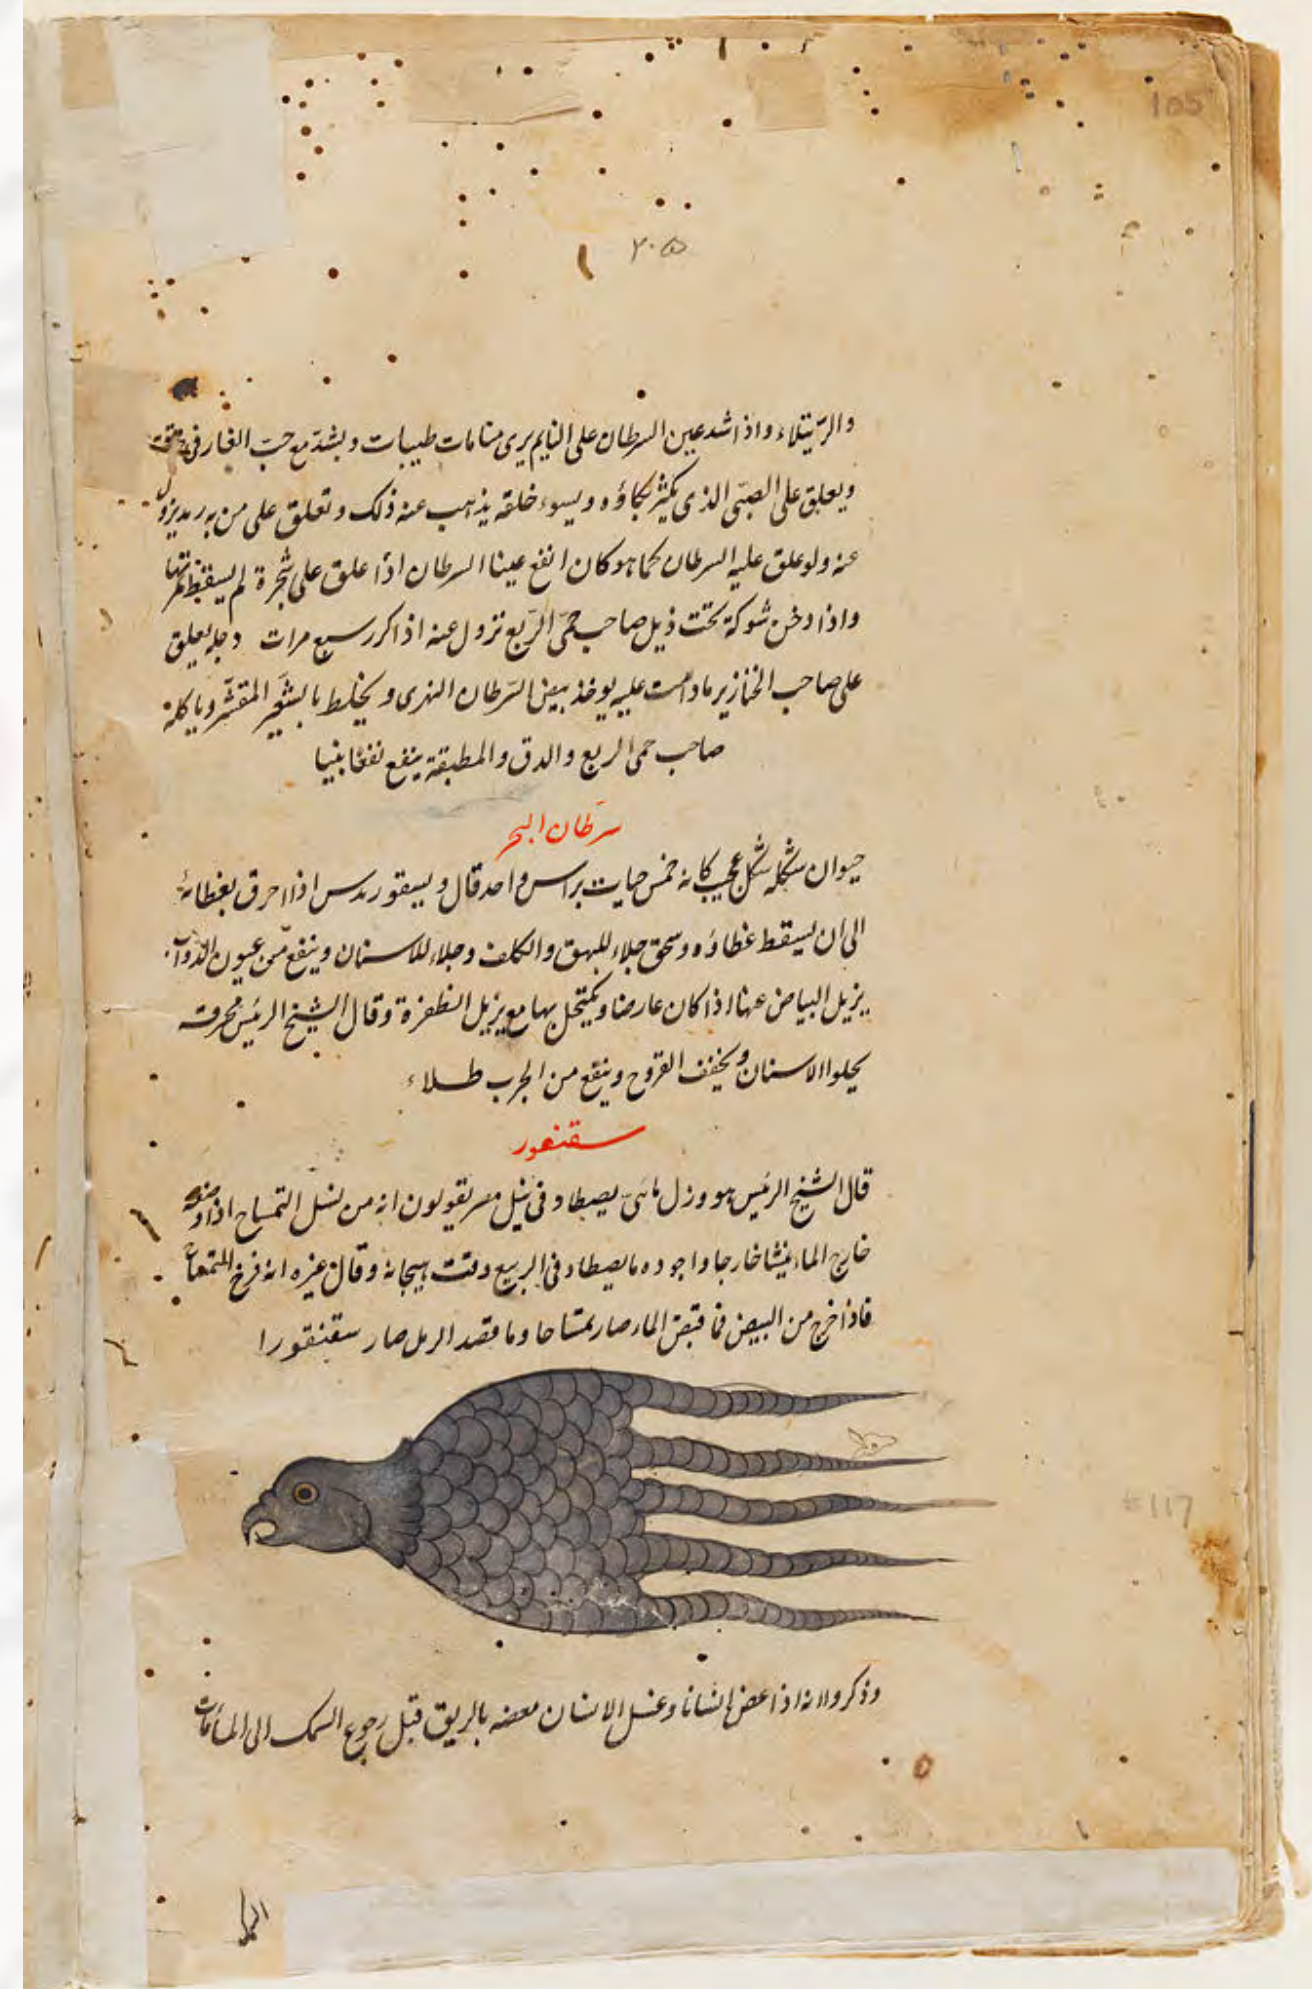 105
٢٠٥
والرتيلاء واذا شد عين السرطان على النايم يرى منامات طيبات ويشد مع حب الغار فى
ويعلق على الصبى الذى يكثر بكاؤه ويسوء خلقه يذهب عنه ذلك وتعلق على من به رمد يزول
عنه ولو علق عليه السرطان كما هو كان انفع عينا السرطان اذا علق على شجرة لم يسقط ثمرتها
واذا دخن شوكة تحت ذيل صاحب حمى الربع تزول عنه اذا كرر سبع مرات رجله يعلق
على صاحب الخنازير مادامت عليه يوخذ بيض السرطان النهرى ويخلط بالشعير المقشر وياكله
صاحب حمى الربع والدق والمطبقة ينفع نفعا بينا
سرطان البحر
حيوان شكله شكل عجيب كانه خمس حيات براس واحد قال ديسقوريدس اذا احرق بغطائه
الى ان يسقط غطاؤه وسحق جلاء للبهق والكلف وجلاء للاسنان وينفع من عيون الدواب
يزيل البياض عنها اذا كان عارضا ويكتحل بها مع يزيل الظفرة وقال الشيخ الرئيس محرقه
يجلوا الاسنان ويجفف القروح وينفع من الجرب طلاء
سقنقور
قال الشيخ الرئيس هو ورل مائى يصطاد فى نيل مصر يقولون انه من نسل التمساح اذا وضعه
خارج الماء ينشا خارجا واجوده ما يصطاد فى الربيع وقت هيجانه وقال غيره انه فرخ التمساح
فاذا خرج من البيض فما قبض الماء صار تمساحا وما قصد الرمل صار سقنقورا
#117
وذكروا انه اذا عض انسانا وغسل الانسان معضه بالريق قبل رجوع السمك الى الماء مات